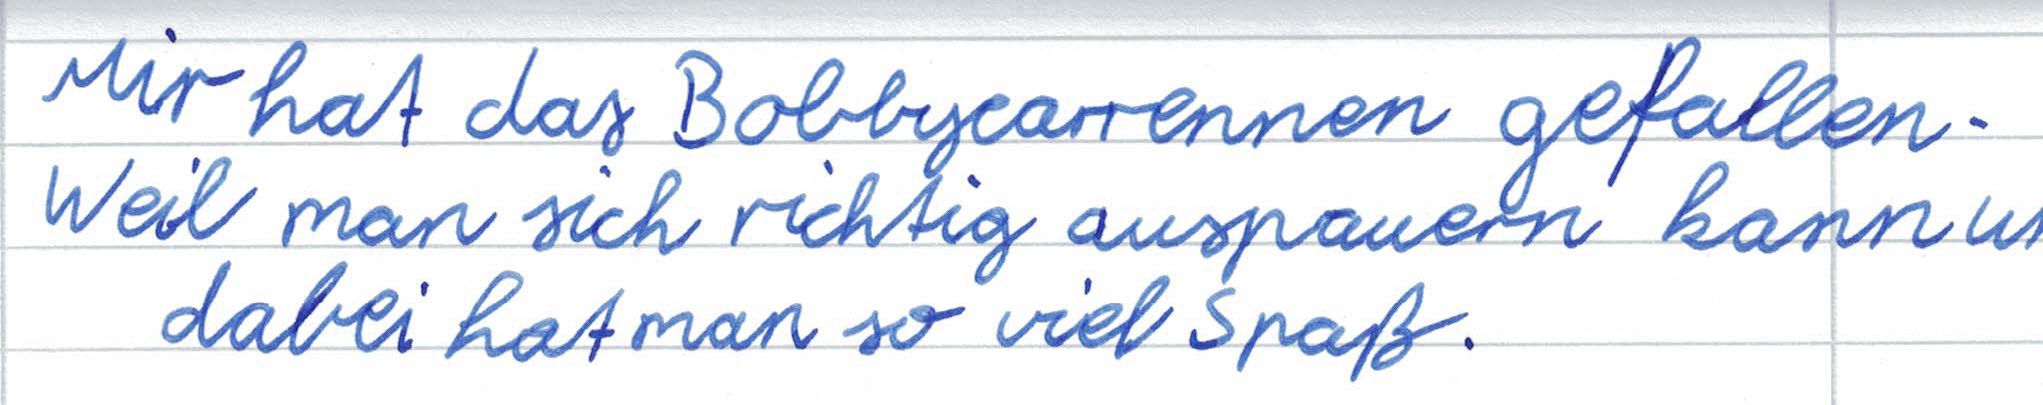 Mir hat das Bobbycarrennen gefallen.
Weil man sich richtig auspauern kann
dabei hat man so viel Spaß.